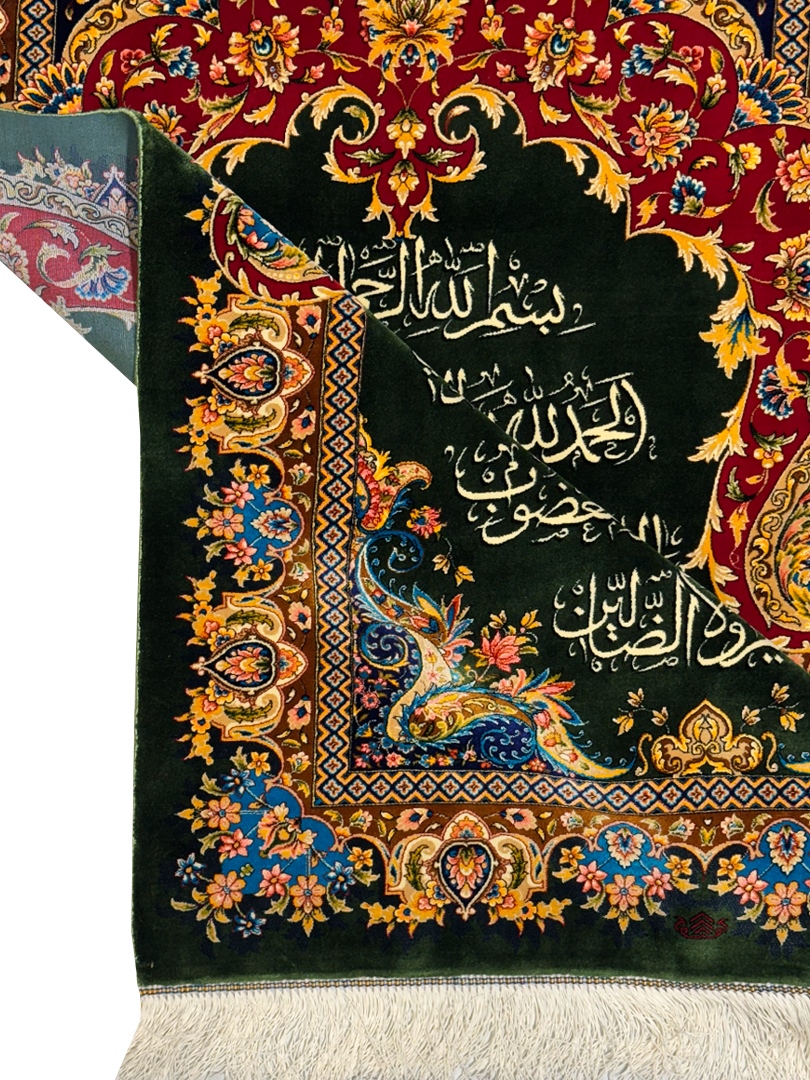 بِسْمِ اللهِ الرَّحـ
الحَمدُ للهِ
ـغضوب
ـير ولا الضَّالّين